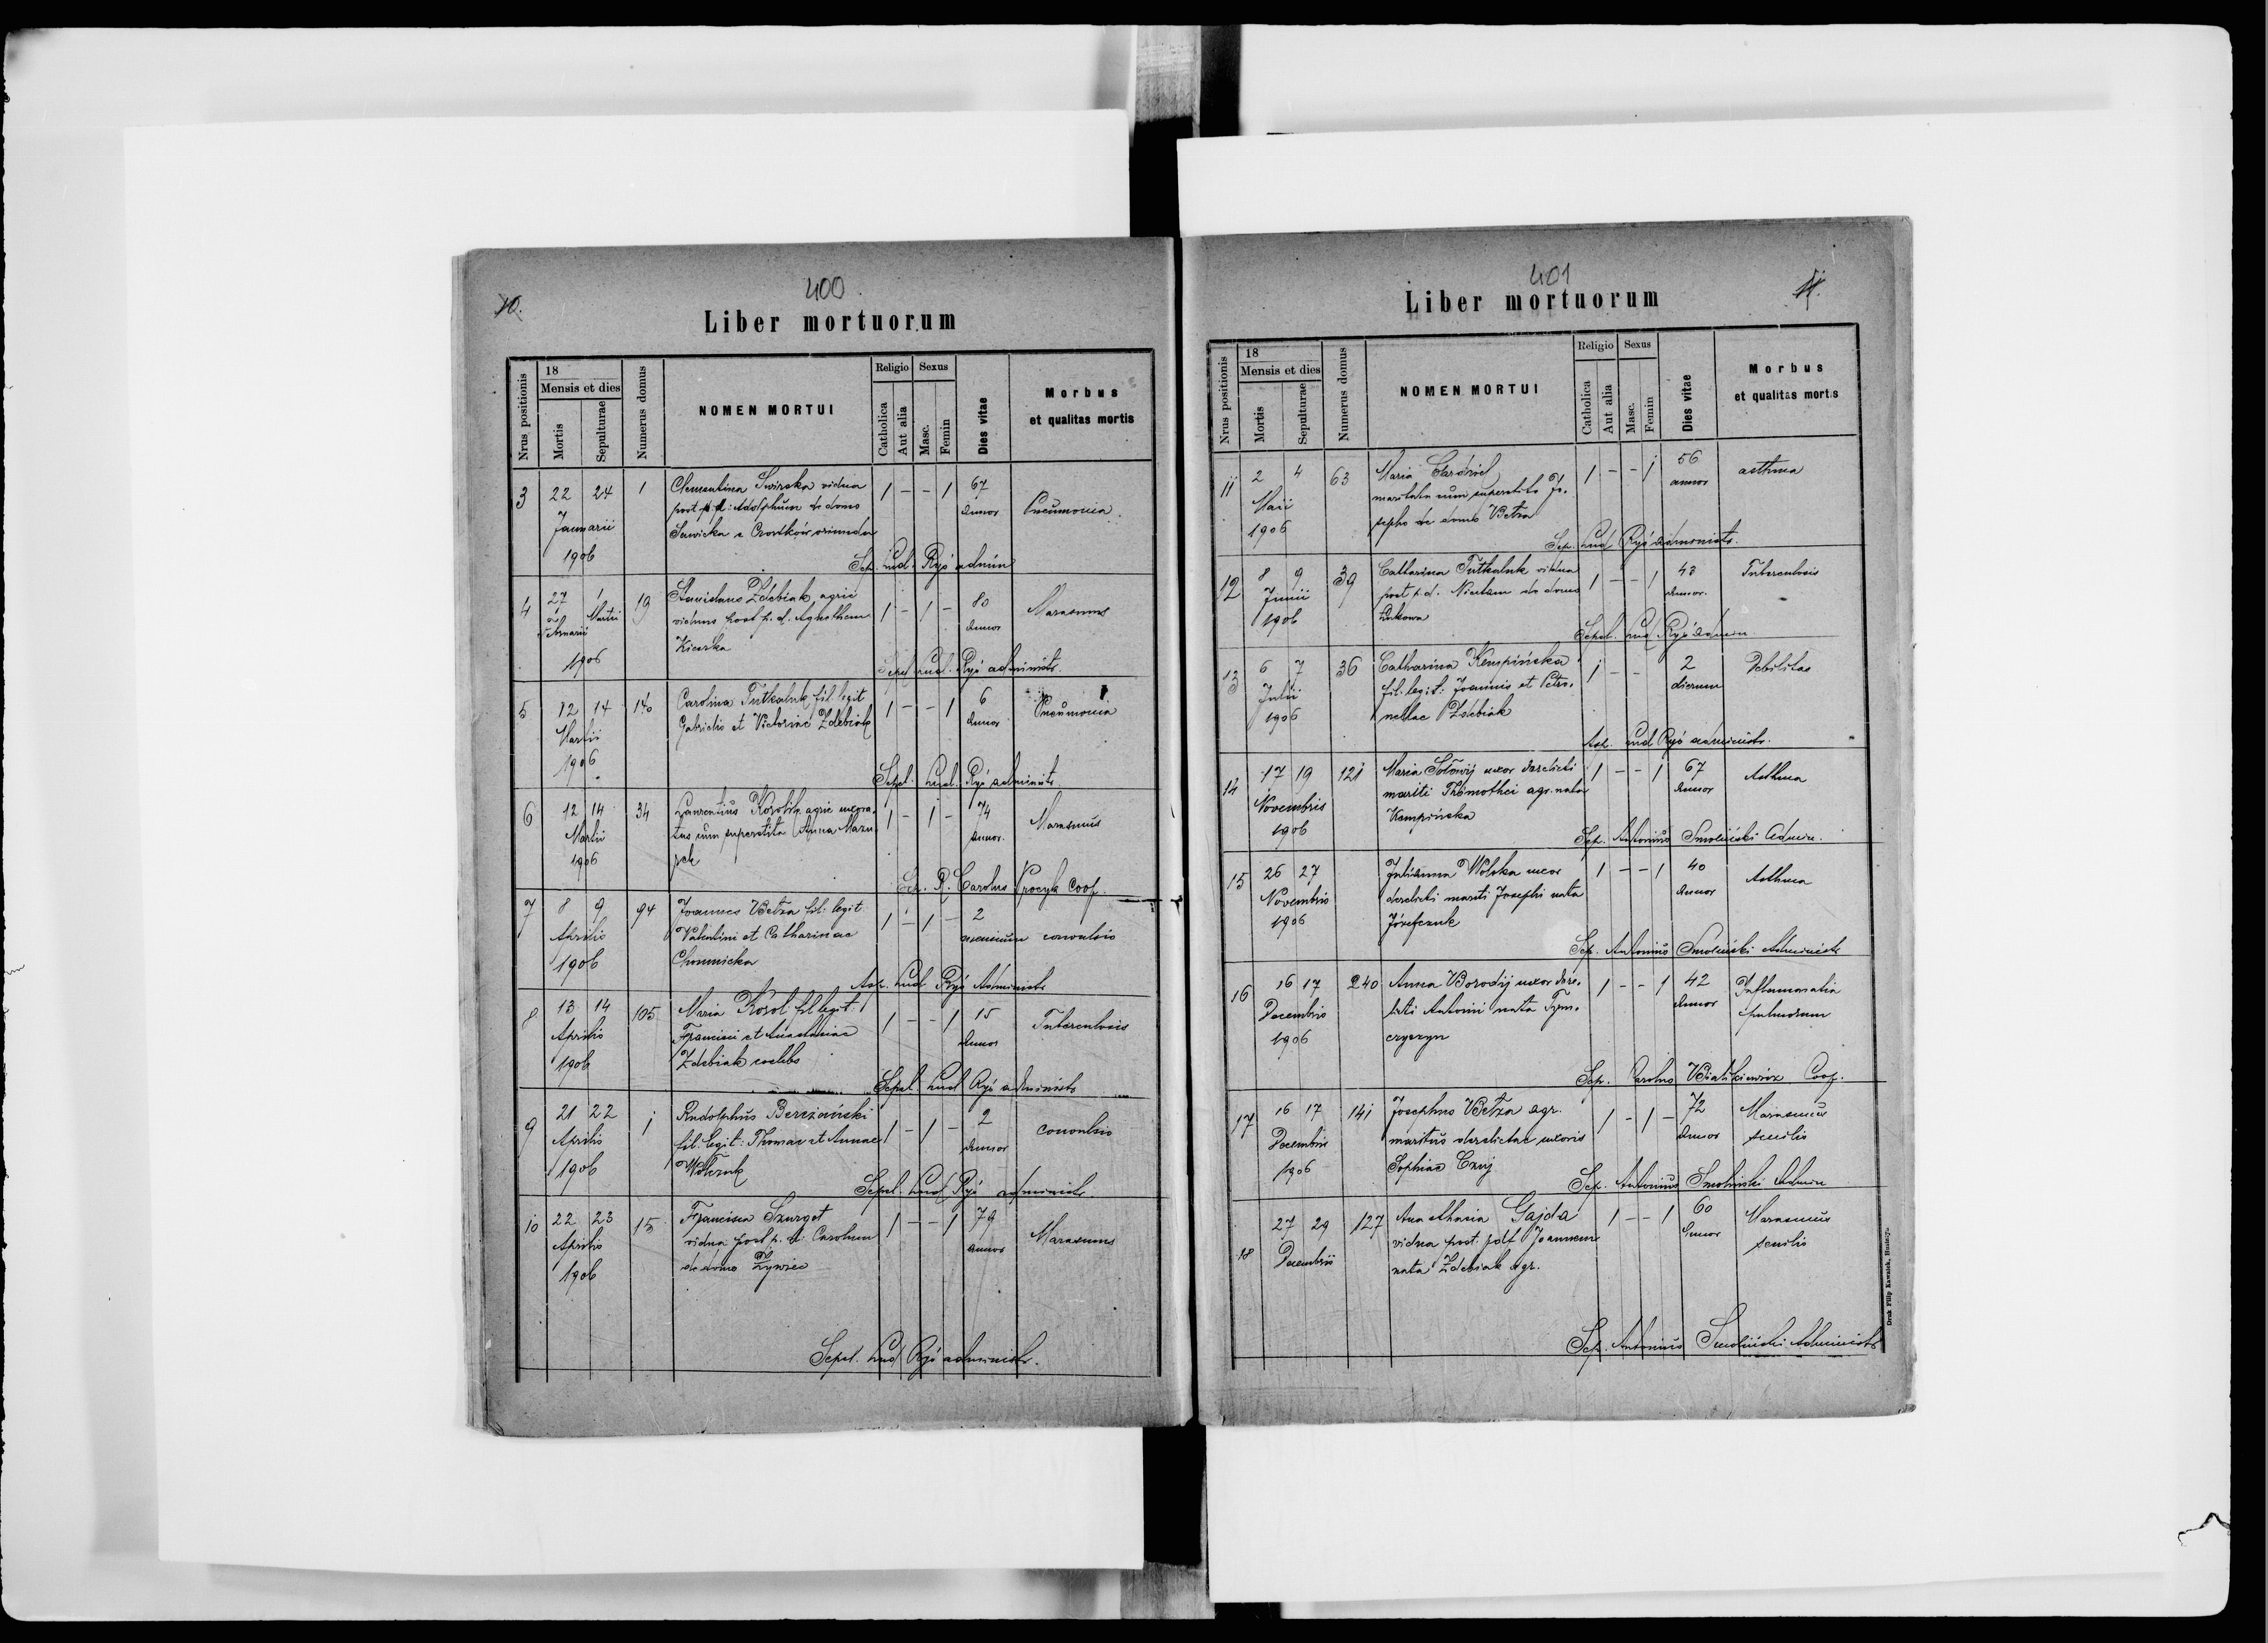 10.
400
Liber mortuorum
Nrus positionis
18
Mensis et dies
Mortis
Sepulturae
Numerus domus
NOMEN MORTUI
Religio
Catholica
Aut alia
Sexus
Masc.
Femin
Dies vitae
Morbus
et qualitas mortis
3 22 24 1 Clementina Swirska vidua 1 – – 1 67
Januarii post p. d: Adolphum de domo annor Pneumonia
1906 Sawicka e Czortków oriunda
Sep. Lud. Ryś admin
4 27 1 19 Stanislaus Zdebiak agric 1 – 1 – 80 Marasmus
Februarii Martii viduus post p. d. Agatham annor
1906
Sepel. Lud. Ryś administr.
5 12 14 140 Carolina Tutkaluk fil. legit 1 – – 1 6 Pneumonia
Martii Gabrielis et Victoriae Zdebiak annor
1906
Sepel. Lud. Ryś administr.
6 12 14 34 Laurentius agric uxora- 1 – 1 – 74 Marasmus
Martii tus cum superstita Anna Mazu- annor.
1906 rek
Sep. R. Carolus Procyk Coop.
7 8 9 94 Joannes Betza fil. legit 1 – 1 – 2
Aprilis Valentini et Catharinae mensium convulsio
1906 Chomnicka
Lud Ryś Administr
8 13 14 105 Maria Kozol fil. legit. 1 – – 1 15 Tuberculosis
Aprilis Francisci et Anastasiae annor
1906 Zdebiak coelebs
Sepel. Lud Ryś administr
9 21 22 1 Rudolphus Bereżański 1 – 1 – 2 convulsio
Aprilis fil. legit: Thomae et Annae annor
1906
Sepel. Lud Ryś administr
10 22 23 15 Francisca Szurgot 1 – – 1 79 Marasmus
Aprilis vidua post p. d. Carolum annor
1906 de domo Żywiec
Sepel. Lud Ryś administr.
401
11.
Liber mortuorum
Nrus positionis
18
Mensis et dies
Mortis
Sepulturae
Numerus domus
NOMEN MORTUI
Religio
Catholica
Aut alia
Sexus
Masc.
Femin
Dies vitae
Morbus
et qualitas mortis
11 2 4 63 Maria 1 – – 1 56 asthma
Maii maritata cum superstite Jo- annor
1906 sepho de domo Betza
Sep. Lud Ryś administr.
12 8 9 39 Catharina Tutkaluk vidua 1 – – 1 43 Tuberculosis
Junii post p. d. de domo annor.
1906 Żukowa
Sepel. Lud Ryś Admin
13 6 7 36 Catharina Kempińska 1 – – 2 Debilitas
Julii fil. legit: Joannis et Petro- dierum
1906 nellae Zdebiak
Lud Ryś administr.
14 17 19 121 Maria Sołowij uxor derelicti 1 – – 1 67 Asthma
Novembris mariti Thimothei agr. nata annor
1906 Kempińska
Sep. Antonius Smoliński Admin.
15 26 27 Julianna Wolska uxor 1 – – 1 40 Asthma
Novembris derelicti mariti Josephi nata annor
1906 Józefczuk
Sep. Antonius Smoliński Administr
16 16 17 240 Anna Borodij uxor dere- 1 – – 1 42 Inflammatio
Decembris licti Antonii nata Tym- annor pulmorum
1906 czyszyn
Sep. Carolus Coop.
17 16 17 141 Josephus Betza agr. 1 – 1 – 72 Marasmus
Decembris maritus derelictae uxoris annor senilis
1906 Sophiae Czuj
Sep. Antonius Smoliński Admin
18 27 29 127 Anasthasia Gajda 1 – – 1 60 Marasmus
Decembris vidua post pdf Joannem annor senilis
nata Zdebiak agr.
Sep. Antonius Smoliński Administr
Druk Filip Kawalek, Husiatyn.